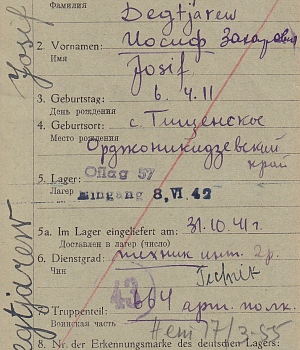 Фамилия
Degtjarew
2. Vornamen: Иосиф Захарович
Имя
Josif
3. Geburtstag: 6. 4.11
День рождения
4. Geburtsort: с. Тищенское
Место рождения
Орджоникидзевский
край
5. Lager: Oflag 57
Лагер
Eingang 8. VI. 42
5a. Im Lager eingeliefert am: 31.10.41г.
Доставлен в лагер (число)
6. Dienstgrad: техник инт. 2р.
Чин
Technik
43
7. Truppenteil: 664 арт. полк.
Воинская часть
17/3-55
8. Nr. der Erkennungsmarke des deutschen Lagers:
Josif
Degtjarew